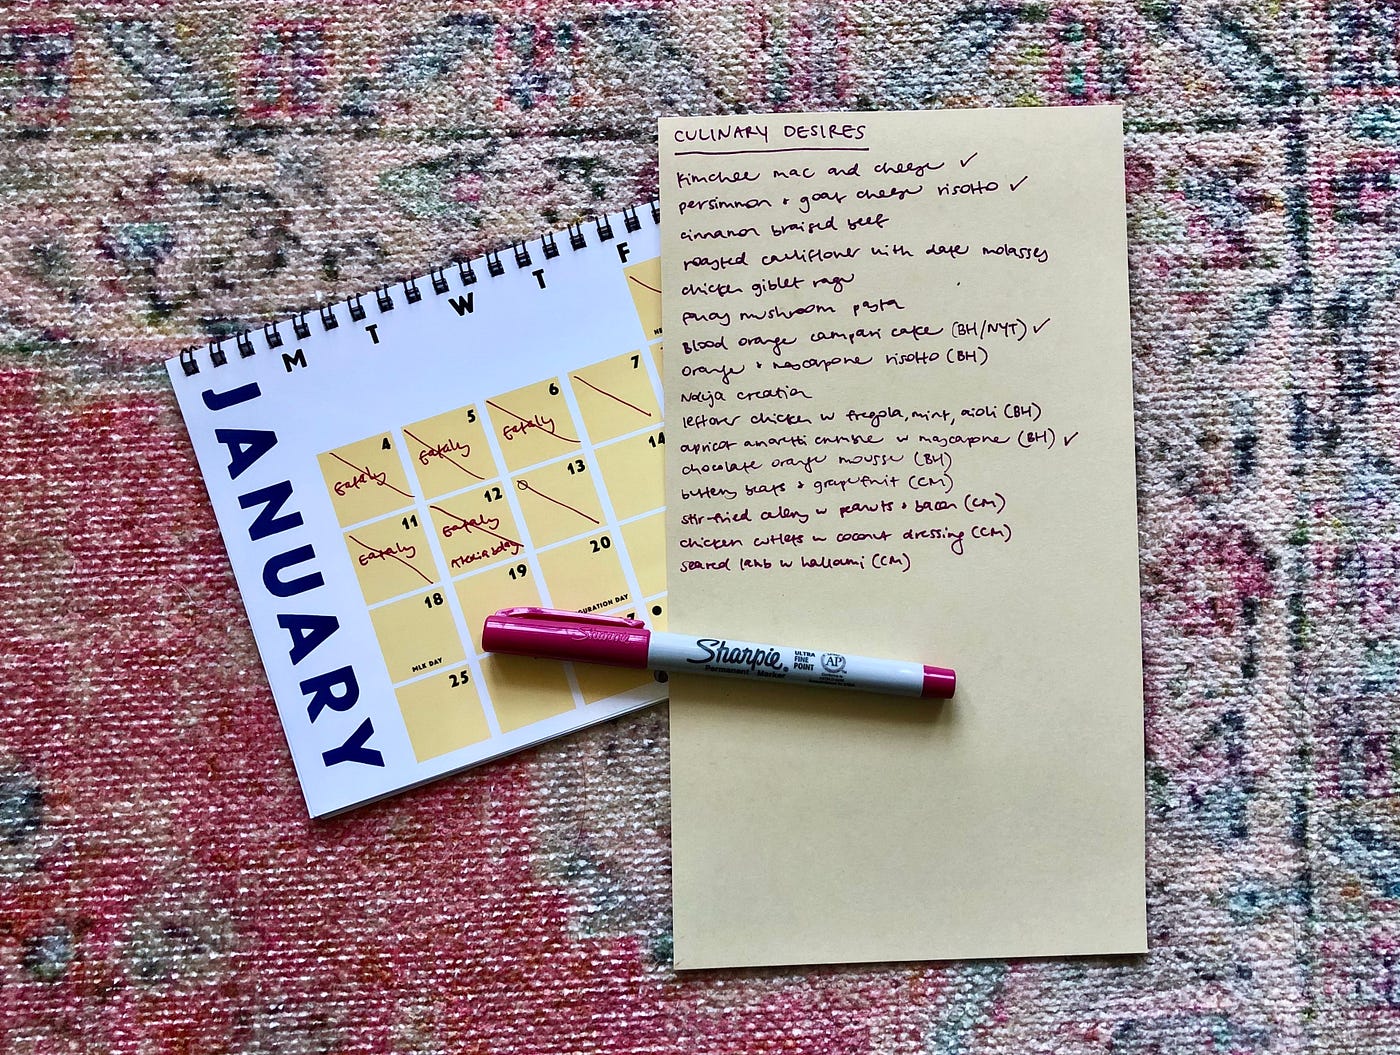 JANUARY
M T W T F
NE
4 Eataly
5 Eataly
6 Eataly
7
11 Eataly
12 Eataly
13
14
18 MLK DAY
19
20 GURATION DAY
25
7
CULINARY DESIRES
kimchee mac and cheese ✓
persimmon + goat cheese risotto ✓
cinnamon braised beef
roasted cauliflower with date molasses
chicken giblet ragu
fancy mushroom pasta
Blood orange campari cake (BH/NYT) ✓
orange + mascarpone risotto (BH)
Naija creation
leftover chicken w fregola, mint, aioli (BH)
apricot amaretti crumble w mascarpone (BH) ✓
chocolate orange mousse (BH)
buttery beets + grapefruit (CM)
stir-fried celery w peanuts + bacon (CM)
chicken cutlets w coconut dressing (CM)
seared lamb w halloumi (CM)
Sharpie
Sharpie®
Permanent Marker
ULTRA
FINE
POINT
AP